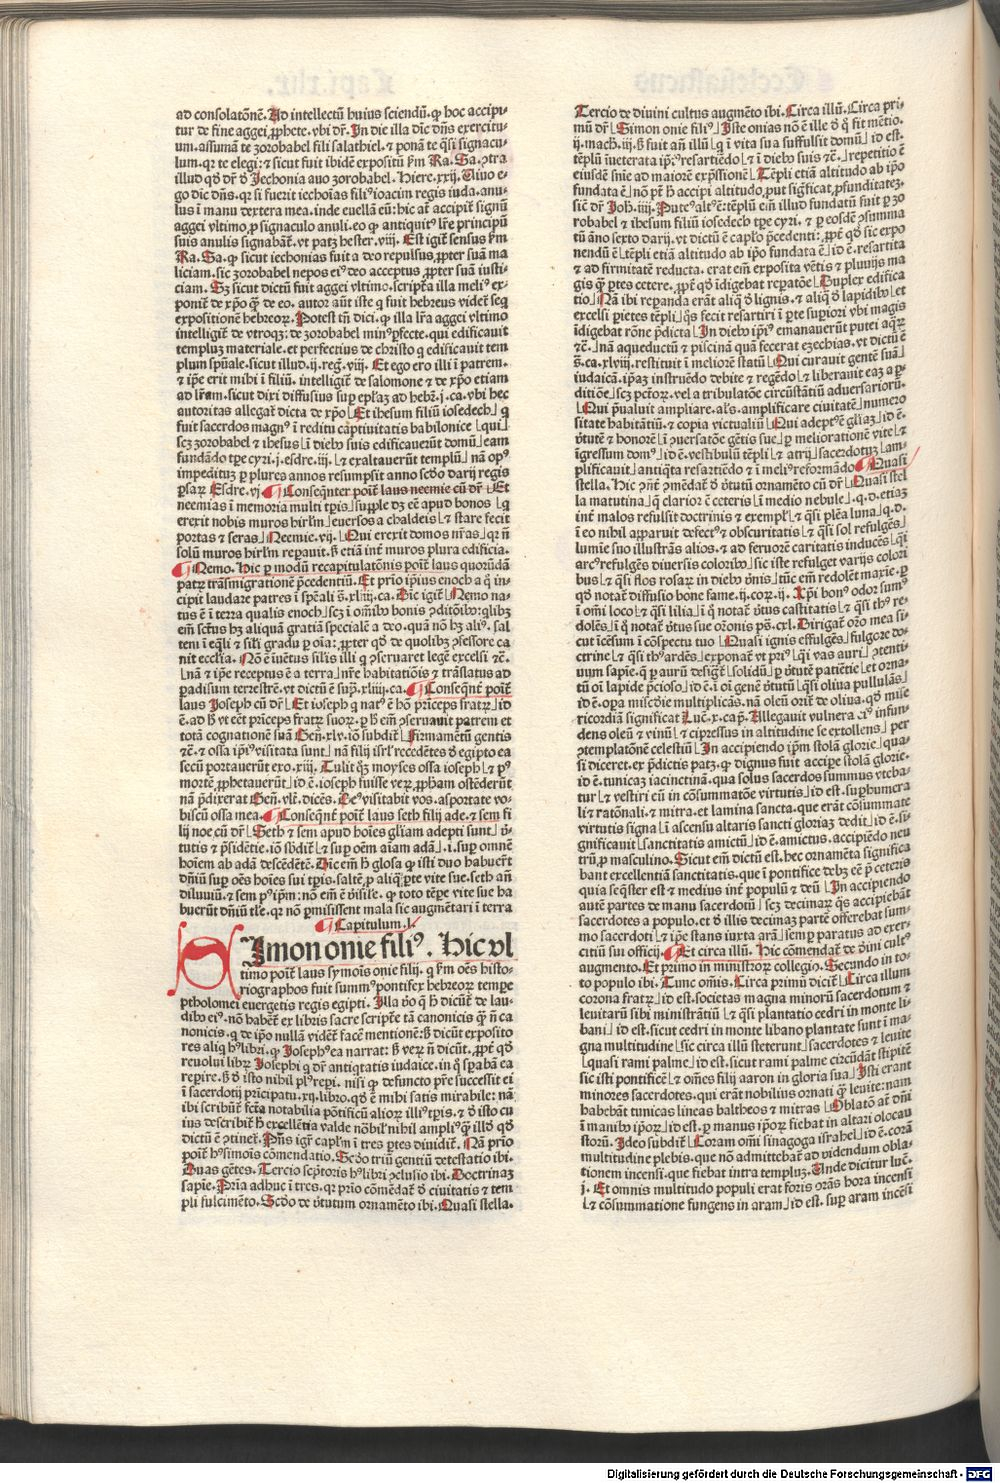 ad consolatōnem. Ad intellectū huius sciendū. ꝙ hoc accipi-
tur de fine aggei ꝓphete. vbi dr̄. In die illa dic̄ dn̄s exercitu
um. assumā te zorobabel fili salathiel. ⁊ ponā te q̄si signacu-
lum. qꝛ te elegi: ⁊ sicut fuit ibidē expositū ẜm Ra. Sa. ↄtra
illud qḋ dr̄ ḋ Jechonia auo zorobabel. Hiere. xxij. Viuo e-
go dic̄ dn̄s. qꝛ si fuerit iechoïas filiꝰ ioacim regis iuda. anu-
lus ī manu dextera mea. inde euellā eū: hic at̄ accipit̄ signū
aggei vltimo. ꝓ signaculo anuli. eo ꝙ antiquitꝰ lr̄e principū
suis anulis signabāt̄. vt patꝫ hester. viij. Est igit̄ sensus ẜm
Ra. Sa. ꝙ sicut iechonias fuit a deo repulsus ꝓpter suā ma
liciam. sic zorobabel nepos eiꝰ deo acceptus ꝓpter suā iusti-
ciam. Sꝫ sicut dictū fuit aggei vltimo. scriptēa illa meliꝰ ex-
ponit̄ de xp̄o ꝙ̄ de eo. autor aūt iste ꝗ fuit hebreus videt̄ seq̄
expositionē hebreoꝝ. Potest tn̄ dici. ꝙ illa lr̄a aggei vltimo
intelligit̄ de vtroqꝫ: de zorobabel minꝰ ꝑfecte. qui edificauit
templuꝫ materiale. et perfectius de christo ꝗ edificauit tem
plum spūale. sicut illud. ij. reḡ. viij. Et ego ero illi ī patrem.
⁊ ip̄e erit mihi ī filiū. intelligit̄ de salomone ⁊ de xp̄o etiam
ad lr̄am. sicut dixi diffusius suꝑ ep̄laꝫ ad hebr̄. j. ca. vbi hec
autoritas allegat̄ dicta de xp̄o ⌊Et ihesum filiū iosedech⌋ ꝗ
fuit sacerdos magnꝰ ī reditu captiuitatis babilonice ⌊qui⌋
scꝫ zorobabel ⁊ ihesus ⌊ī diebꝰ suis edificauerūt domū⌋ eam
fundādo tꝑe cyri. j. esdre. iij. ⌊⁊ exaltauerūt templū⌋ nā opꝰ
impeditūꝫ ꝑ plures annos resumpsit anno scḋo darij regis
ꝑsaꝝ Esdre. vj ¶ Conseq̄nter ponit̄ laus neemie cū dr̄ ⌊Et
neemias ī memoria multi tꝑis⌋ supple dꝫ eē apud bonos ⌊ꝗ
erexit nobis muros hirlm̄⌋ euersos a chaldeis ⌊⁊ stare fecit
portas ⁊ seras⌋ Neemie. vij. ⌊Qui erexit domos nr̄as⌋ qꝛ n̄
solū muros hirlm̄ reꝑauit. ẜ etiā int̄ muros plura edificia.
¶ Nemo. Hic ꝑ modū recapitulatōnis ponit̄ laus quorūdā
patꝝ trāsmigrationē p̄cedentiū. Et pr̄io ip̄ius enoch a q̄ in-
cipit laudare patres ī spēali s̄. xliiij. ca. Dic̄ igit̄ ⌊Nemo na-
tus ē ī terra qualis enoch⌋ scꝫ ī oībꝰ bonis ↄditōibꝰ: qlibꝫ
em̄ sct̄us hꝫ aliquā gratiā specialē a deo. quā nō hꝫ aliꝰ. sal
tem ī eq̄li ⁊ sil̄i gradu ꝑ oīa: ꝓpter qḋ de quolibꝫ ↄfessore ca
nit ecclīa. Nō ē īuētus sil̄is illi ꝗ ↄseruaret legē excelsi ⁊c̄.
⌊nā ⁊ ip̄e receptus ē a terra⌋ nr̄e habitatiōis ⁊ trāslatus ad
ꝑadisum terrestrē. vt dictū ē suꝑ. xliiij. ca. ¶ Conseq̄nt̄ ponit̄
laus Joseph cū dr̄ ⌊Et ioseph ꝗ natꝰ ē hō prīceps fratꝝ⌋ id
ē. ad h̄ vt eēt prīceps fratꝝ suoꝝ. ꝑ h̄ em̄ ↄseruauit patrem et
totā cognationē suā Gen̄. xlv. iō subdit̄ ⌊Firmamētū gentis
⁊c̄. ⁊ ossa ip̄iꝰ visitata sunt⌋ nā filij isrl̄ recedētes ḋ egipto ea
secū portauerūt exo. xiij. Tulit q̄ꝫ moyses ossa ioseph ⌊⁊ pꝰ
mortē ꝓphetauerūt⌋ id ē. ioseph fuisse veꝝ ꝓpham ostēderūt
nā p̄dixerat Gen̄. vlt̄. dicēs. Deꝰ visitabit vos. asportate vo-
biscū ossa mea. ¶ Conseq̄nt̄ ponit̄ laus seth filij ade. ⁊ sem fi
lij noe cū dr̄ ⌊Seth ⁊ sem apud hoīes gl̄iam adepti sunt⌋ v̄-
tutis ⁊ p̄sidētie. iō sb̄dit̄ ⌊⁊ suꝑ oēm aīam adā⌋. i. suꝑ omnē
hoīem ab adā descēdētē. Dic̄ em̄ h̄ glosa ꝙ isti duo habuer̄t
dn̄iū suꝑ oēs hoīes sui tꝑis. saltē ꝓ aliq̄ ꝑte vite sue. seth añ
diluuiū. ⁊ sem pꝰ ip̄m: nō em̄ ē v̄isil̄e. ꝙ toto tēꝑe vite sue ha
buerūt dn̄iū tl̄e. qꝛ nō ꝑmisissent mala sic augmētari ī terra
¶ Capitulum. l.
Simon onie filiꝰ. Hic vl
timo ponit̄ laus symōis onie filij. ꝗ ẜm oēs histo-
riographos fuit summꝰ pontifex hebreoꝝ tempe
ptholomei euergetis regis egipti. Illa v̄o q̄ h̄ dicūt̄ de lau-
dibꝰ eiꝰ. nō habēt̄ ex libris sacre scripte tā canonicis ꝙ̄ n̄ ca
nonicis. ꝗ de ip̄o nullā vident̄ facē mentionē: ẜ dicūt exposito
res aliꝗ hꝰ libri. ꝙ Josephꝰ ea narrat: ẜ veꝝ n̄ dicūt. ꝓpt̄ qḋ
reuolui libꝝ Josephi ꝗ dr̄ antiq̄tatis iudaice. in q̄ sꝑabā ea
reꝑire. ẜ ḋ isto nihil plꝰ reꝑi. nisi ꝙ defuncto pr̄e successit ei
ī sacerdotij prīcipatu. xij. libro. qḋ ē mihi satis mirabile: nā
ibi scribūt̄ fcta notabilia pōtificū alioꝝ illiꝰ tꝑis. ⁊ ḋ isto cu
ius describit̄ h̄ excellētia valde nōbil̄ nihil ampliꝰ ꝙ̄ illḋ qḋ
dictū ē ↄtinet̄. Pn̄s igr̄ capl̄m ī tres ꝑtes diuidit̄. Nā prio
ponit̄ hꝰ simōis cōmendatio. Scḋo triū gentiū detestatio ibi.
Duas gētes. Tercio scp̄toris hꝰ libri ↄclusio ibi. Doctrinaꝫ
sapīe. Prīa adhuc ī tres. qꝛ prio cōmēdat̄ ḋ ciuitatis ⁊ tem
pli fulcimēto. Scḋo de v̄tutum ornamēto ibi. Quasi stella.
Tercio de diuini cultus augmēto ibi. Circa illū. Circa pri-
mū dr̄ ⌊Simon onie filiꝰ⌋ Iste onias nō ē ille ḋ ꝗ fit mētio.
ij. mach̄. iij. ẜ fuit añ illū ⌊ꝗ ī vita sua suffulsit domū⌋ id est.
tēplū inueterata ip̄iꝰ resartiēdo ⌊⁊ ī diebꝰ suis ⁊c̄.⌋ repetitio ē
eiusdē snīe ad maiorē exp̄ssionē ⌊Tēpli etiā altitudo ab ip̄o
fundata ē⌋ nō pr̄ h̄ accipi altitudo ꝓut sigꝰficat ꝓfunditateꝫ.
sic̄ dr̄ Joh̄. iiij. Puteꝰ altꝰ ē: tēplū em̄ illud fundatū fuit ꝑ zo
robabel ⁊ ihesum filiū iosedech tꝑe cyri. ⁊ ꝑ eosdē ↄsumma
tū āno sexto darij. vt dictū ē capl̄o p̄cedenti: ꝓpt̄ qḋ sic expo
nendū ē ⌊tēpli etiā altitudo ab ip̄o fundata ē⌋ id ē. resartita
⁊ ad firmitatē reducta. erat em̄ exposita vētis ⁊ pluuijs ma
gis ꝙ̄ ꝑtes cetere. ꝓpt̄ qḋ īdigebat reꝑatōe ⌊Duplex edifica
tio⌋ Nā ibi reꝑanda erāt aliꝙ̄ ḋ lignis. ⁊ aliꝙ̄ ḋ lapidibꝰ ⌊et
excelsi pietes tēpli⌋ q̄s fecit resartiri ī ꝑte suꝑiori vbi magis
īdigebat rōne p̄dicta ⌊In diebꝰ ip̄iꝰ emanauerūt putei aq̄ꝝ
⁊c̄.⌋ nā aqueductū ⁊ piscinā quā fecerat ezechias. vt dictū ē
s̄. ca. xlviij. restituit ī meliorē statū ⌊Qui curauit gentē suā⌋
iudaicā. ip̄aꝫ instruēdo debite ⁊ regēdo ⌊⁊ liberauit eaꝫ a ꝑ
ditiōe⌋ scꝫ pctoꝝ. vel a tribulatōe circūstātiū aduersarioꝝ.
⌊Qui p̄ualuit ampliare. al̄s. amplificare ciuitatē⌋ numero
sitate habitātiū. ⁊ copia victualiū ⌊Qui adeptꝰ ē gl̄iaꝫ⌋ id ē.
v̄tutē ⁊ bonorē ⌊ī ↄuersatōe gētis sue⌋ ꝑ meliorationē vite ⌊⁊
īgressum domꝰ⌋ id ē. vestibulū tēpli ⌊⁊ atrij⌋ sacerdotuꝫ ⌊am-
plificauit⌋ antiq̄ta resartiēdo ⁊ ī meliꝰ reformādo ¶ Quasi
stella. Hic ↄn̄t̄ ↄmēdat̄ ḋ v̄tutū ornamēto cū dr̄ ⌊Quasi stel
la matutina⌋ q̄ clarior ē ceteris ⌊ī medio nebule⌋. q. d. etiaꝫ
int̄ malos refulsit doctrinis ⁊ exempl̄ ⌊⁊ q̄si plēa luna⌋ q. d.
ī eo nihil apparuit defectꝰ ⁊ obscuritatis ⌊⁊ q̄si sol refulgēs⌋
lumīe suo illustrās alios. ⁊ ad feruorē caritatis inducēs ⌊q̄si
arcꝰ refulgēs diuersis coloribꝰ⌋ sic iste refulget varijs colori
bus ⌊⁊ q̄si flos rosaꝝ in diebꝰ v̄nis⌋ tūc em̄ redolēt maxīe. ꝑ
qḋ notat̄ diffusio bone fame. ij. coꝝ. ij. Xp̄i bonꝰ odor sumꝰ
ī omī loco ⌊⁊ q̄si lilia⌋ ī ꝗ notat̄ v̄tus castitatis ⌊⁊ q̄si thꝰ re-
dolēs⌋ ī q̄ notat̄ v̄tus sue orōnis ps̄. cxl. Dirigat̄ orō mea si-
cut īcēsum ī cōspectu tuo ⌊Quasi ignis effulgēs⌋ fulgore do-
ctrine ⌊⁊ q̄si thꝰ ardēs⌋ exponat̄ vt priꝰ ⌊q̄i vas auri⌋ ↄtenti-
uum sapīe. q̄ ꝑ aurū desigt̄ ⌊solidū⌋ ꝑ v̄tutē patiētie ⌊et orna-
tū oī lapide p̄cioso⌋ id ē. ī oī genē v̄tutū ⌊q̄si oliua pullulās⌋
id ē. opa mīscdīe multiplicās. nā oleū orit̄ de oliua. qḋ mīse
ricordiā significat Luc̄. x. cap̄. Alligauit vulnera eiꝰ infun-
dens oleū ⁊ vinū ⌊⁊ cipressus in altitudine se extollens⌋ per
ↄtemplatōnē celestiū ⌊In accipiendo ip̄m stolā glorie⌋ qua-
si diceret. ex p̄dictis patꝫ. ꝙ dignus fuit accipe stolā glorie.
id ē. tunicaꝫ iacinctinā. qua solus sacerdos summus vteba-
tur ⌊⁊ vestiri eū in cōsummatōe virtutis⌋ id est. suꝑhumera
li ⁊ ratōnali. ⁊ mitra. et lamina sancta. que erāt cōsummate
virtutis signa ⌊ī ascensu altaris sancti gloriaꝫ dedit⌋ id ē. si-
gnificauit ⌊sanctitatis amictū⌋ id ē. amictus. accipiēdo neu
trū ꝓ masculino. Sicut em̄ dictū est. hec ornamēta significa
bant excellentiā sanctitatis. que ī pontifice debꝫ eē p̄ ceteris
quia seq̄ster est ⁊ medius int̄ populū ⁊ deū ⌊In accipiendo
autē partes de manu sacerdotū⌋ scꝫ decimaꝝ q̄s accipiebāt
sacerdotes a populo. et ḋ illis decimaꝫ partē offerebāt sum-
mo sacerdoti ⌊⁊ ip̄e stans iuxta arā⌋ semꝑ paratus ad exer-
citiū sui officij. ¶ Et circa illū. Hic cōmendat̄ de v̄ini cultꝰ
augmento. Et primo in ministroꝝ collegio. Secundo in to-
to populo ibi. Tunc om̄is. Circa primū dicit̄ ⌊Circa illum
corona fratꝝ⌋ id est. societas magna minorū sacerdotum ⁊
leuitarū sibi ministrātiū ⌊⁊ q̄si plantatio cedri in monte li-
bani⌋ id est. sicut cedri in monte libano plantate sunt ī ma-
gna multitudine ⌊sic circa illū steterunt⌋ sacerdotes ⁊ leuite
⌊quasi rami palme⌋ id est. sicut rami palme circūdāt stipitē
sic isti pontificē ⌊⁊ om̄es filij aaron in gloria sua⌋ Isti erant
minores sacerdotes. qui erāt nobilius ornati ꝙ̄ leuite: nam
habebāt tunicas lineas baltheos ⁊ mitras ⌊Oblatō at̄ dn̄i
ī manibꝰ ip̄oꝝ⌋ id est. ꝑ manus ip̄oꝝ fiebat in altari olocau
storū. Ideo subdit̄ ⌊Coram omī sinagoga israhel⌋ id ē. corā
multitudine plebis. que nō admittebat̄ ad videndum obla-
tionem incensi. que fiebat intra templuꝫ. Unde dicitur luc̄.
j. Et omnis multitudo populi erat foris orās hora incensi
⌊⁊ cōsummatione fungens in aram⌋ id est. suꝑ aram incēsi
Digitalisierung gefördert durch die Deutsche Forschungsgemeinschaft - DFG